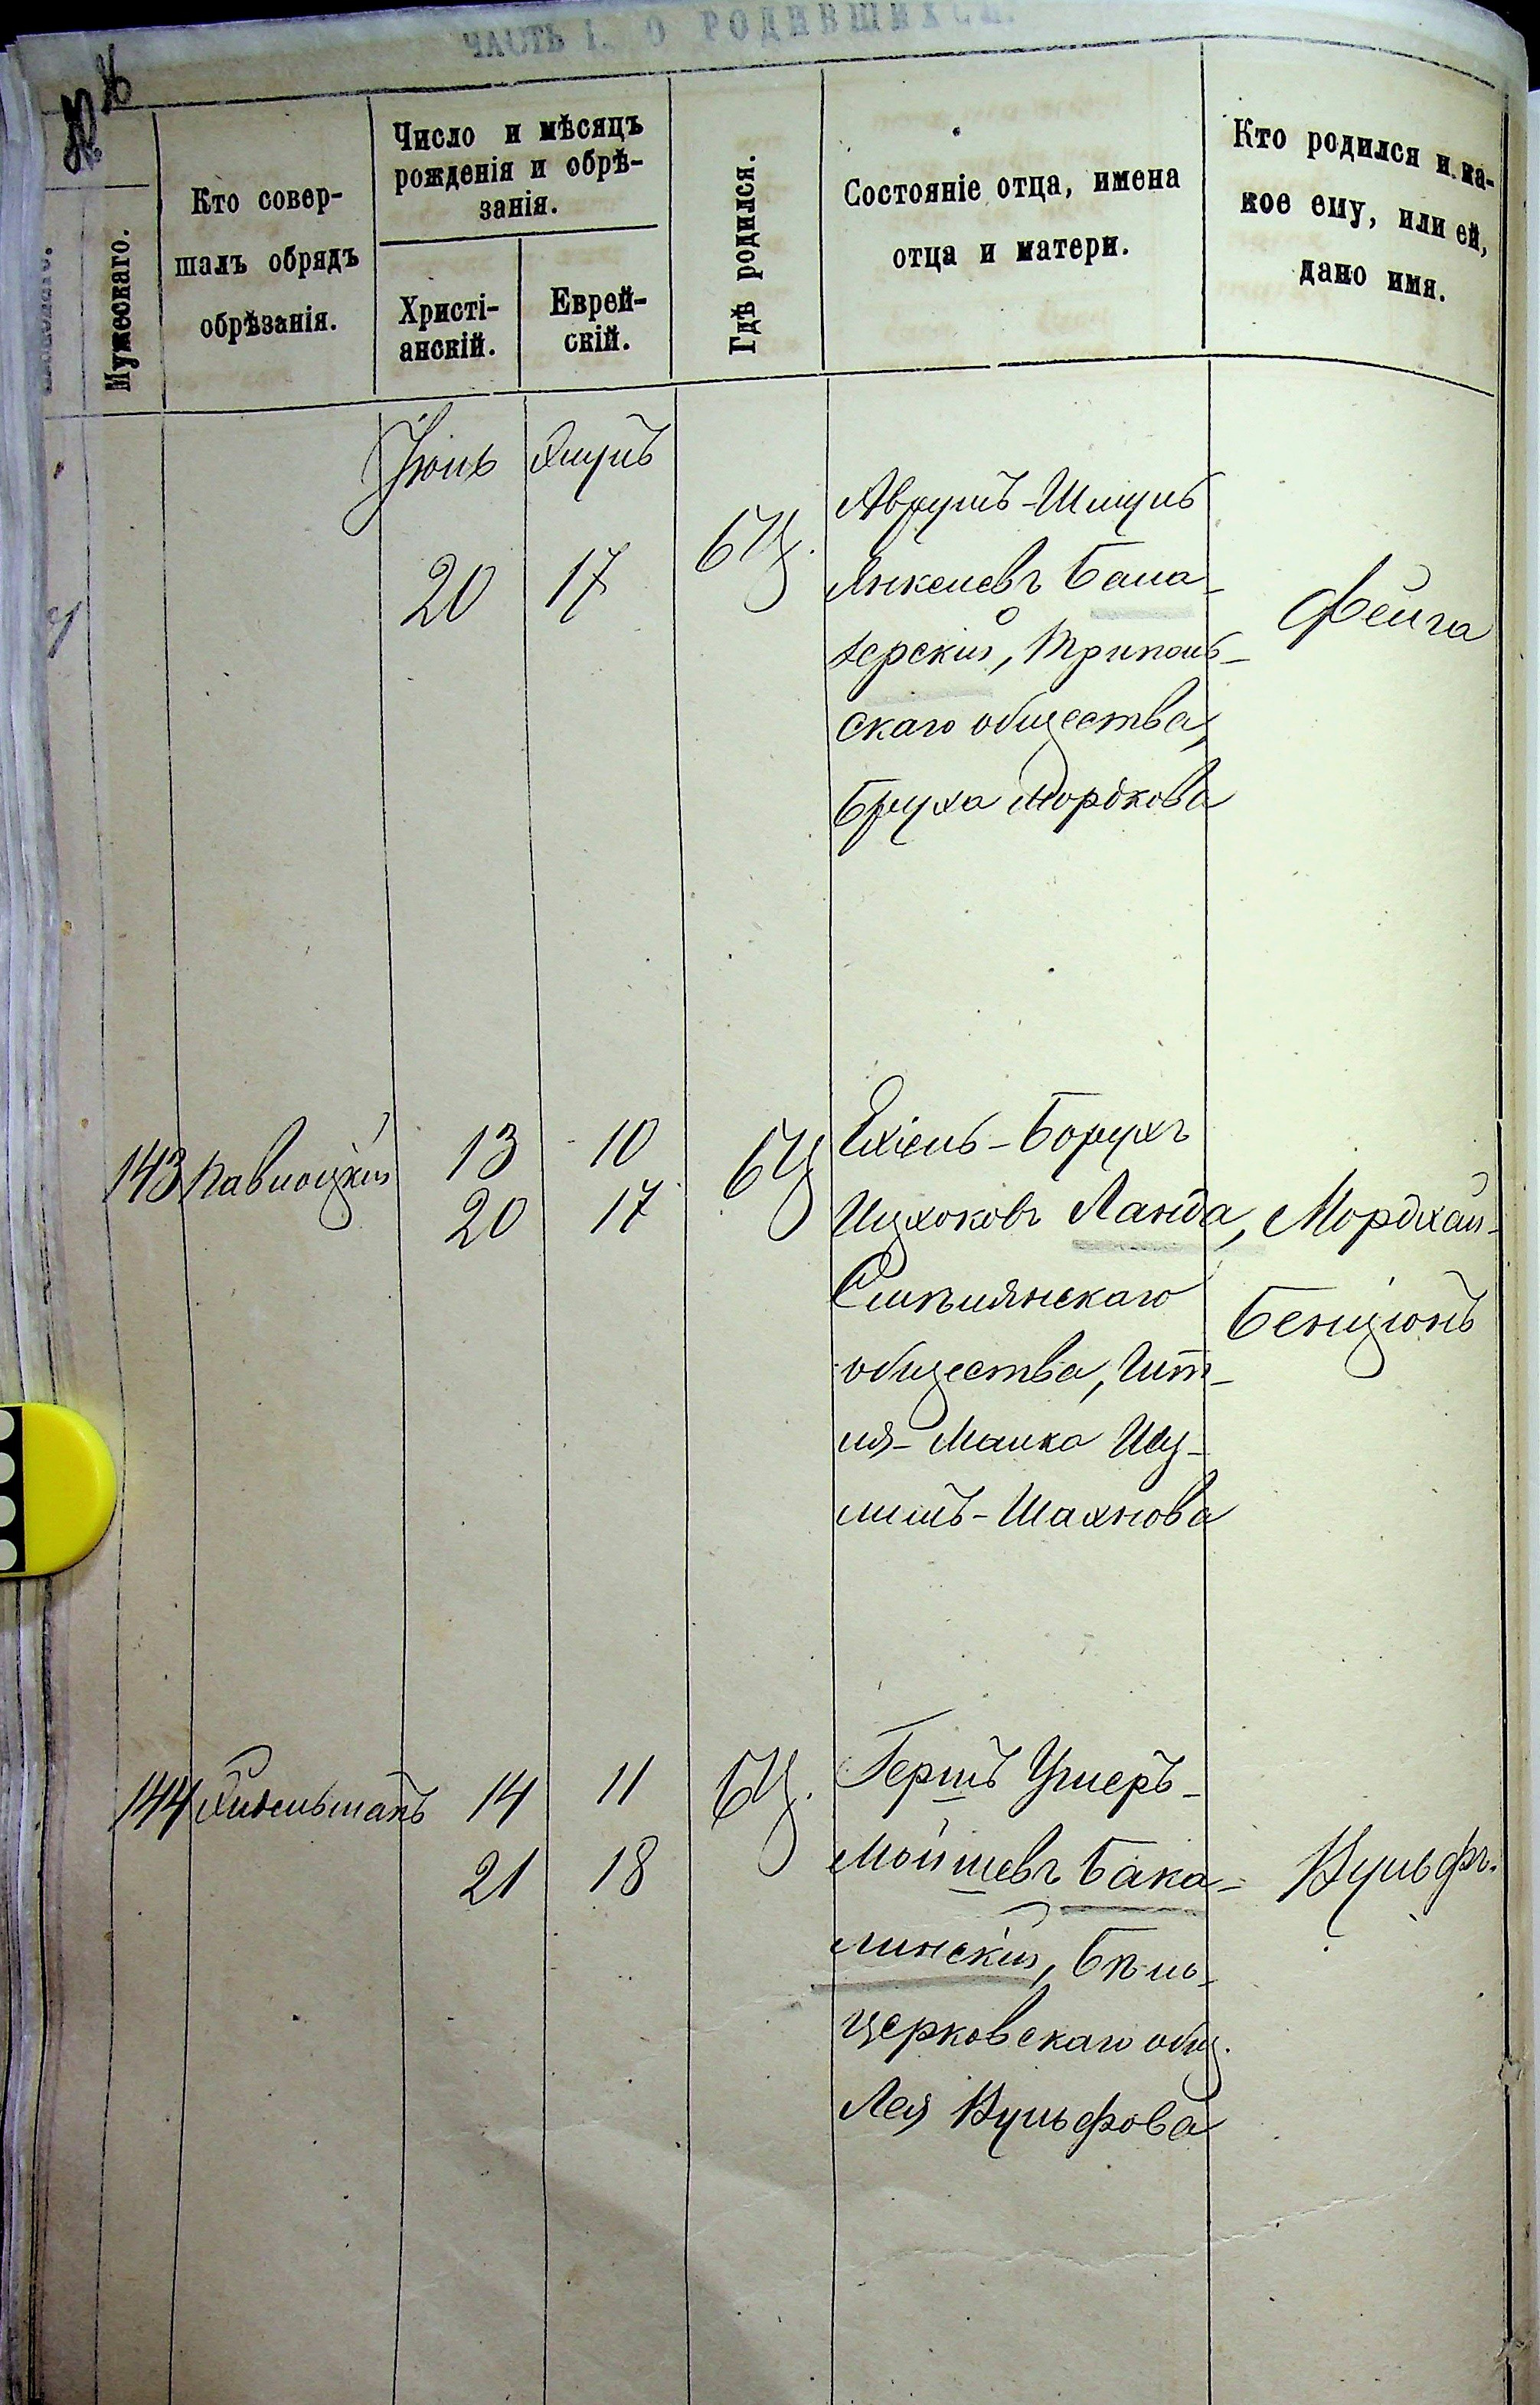 ЧАСТЬ I. О РОДИВШИХСЯ.
Мужескаго.
Кто совер-
шалъ обрядъ
обрѣзанія.
Число и мѣсяцъ
рожденія и обрѣ-
занія.
Христі-
анскій.
Еврей-
скій.
Гдѣ родился.
Состояніе отца, имена
отца и матери.
Кто родился и ка-
кое ему, или ей,
дано имя.
Іюнь
20
17
БЦ.
Аврумъ-Шмуль
Янкелевъ
терскій, Триполь-
скаго общества,
Бруха Мордкова
Фейга
143
Павлоцкій
13
10
20
17
БЦ
Ехіель-Борухъ
Ицхоковъ Ланда,
общества, Гит-
ля-Малка Шу-
лимъ-Шахнова
Мордхай-
Бенціонъ
144
14
11
21
18
БЦ.
Гершъ Ушеръ-
Мойшевъ Бака-
линскій, Бѣло-
церковскаго общ.
Лея Вульфова
Вульфъ.